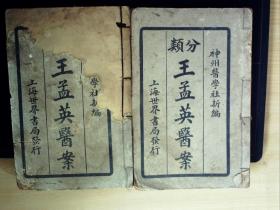 神州醫學社新編
分類
王孟英醫案
上海世界書局發行
學社新編
王孟英醫案
上海世界書局發行